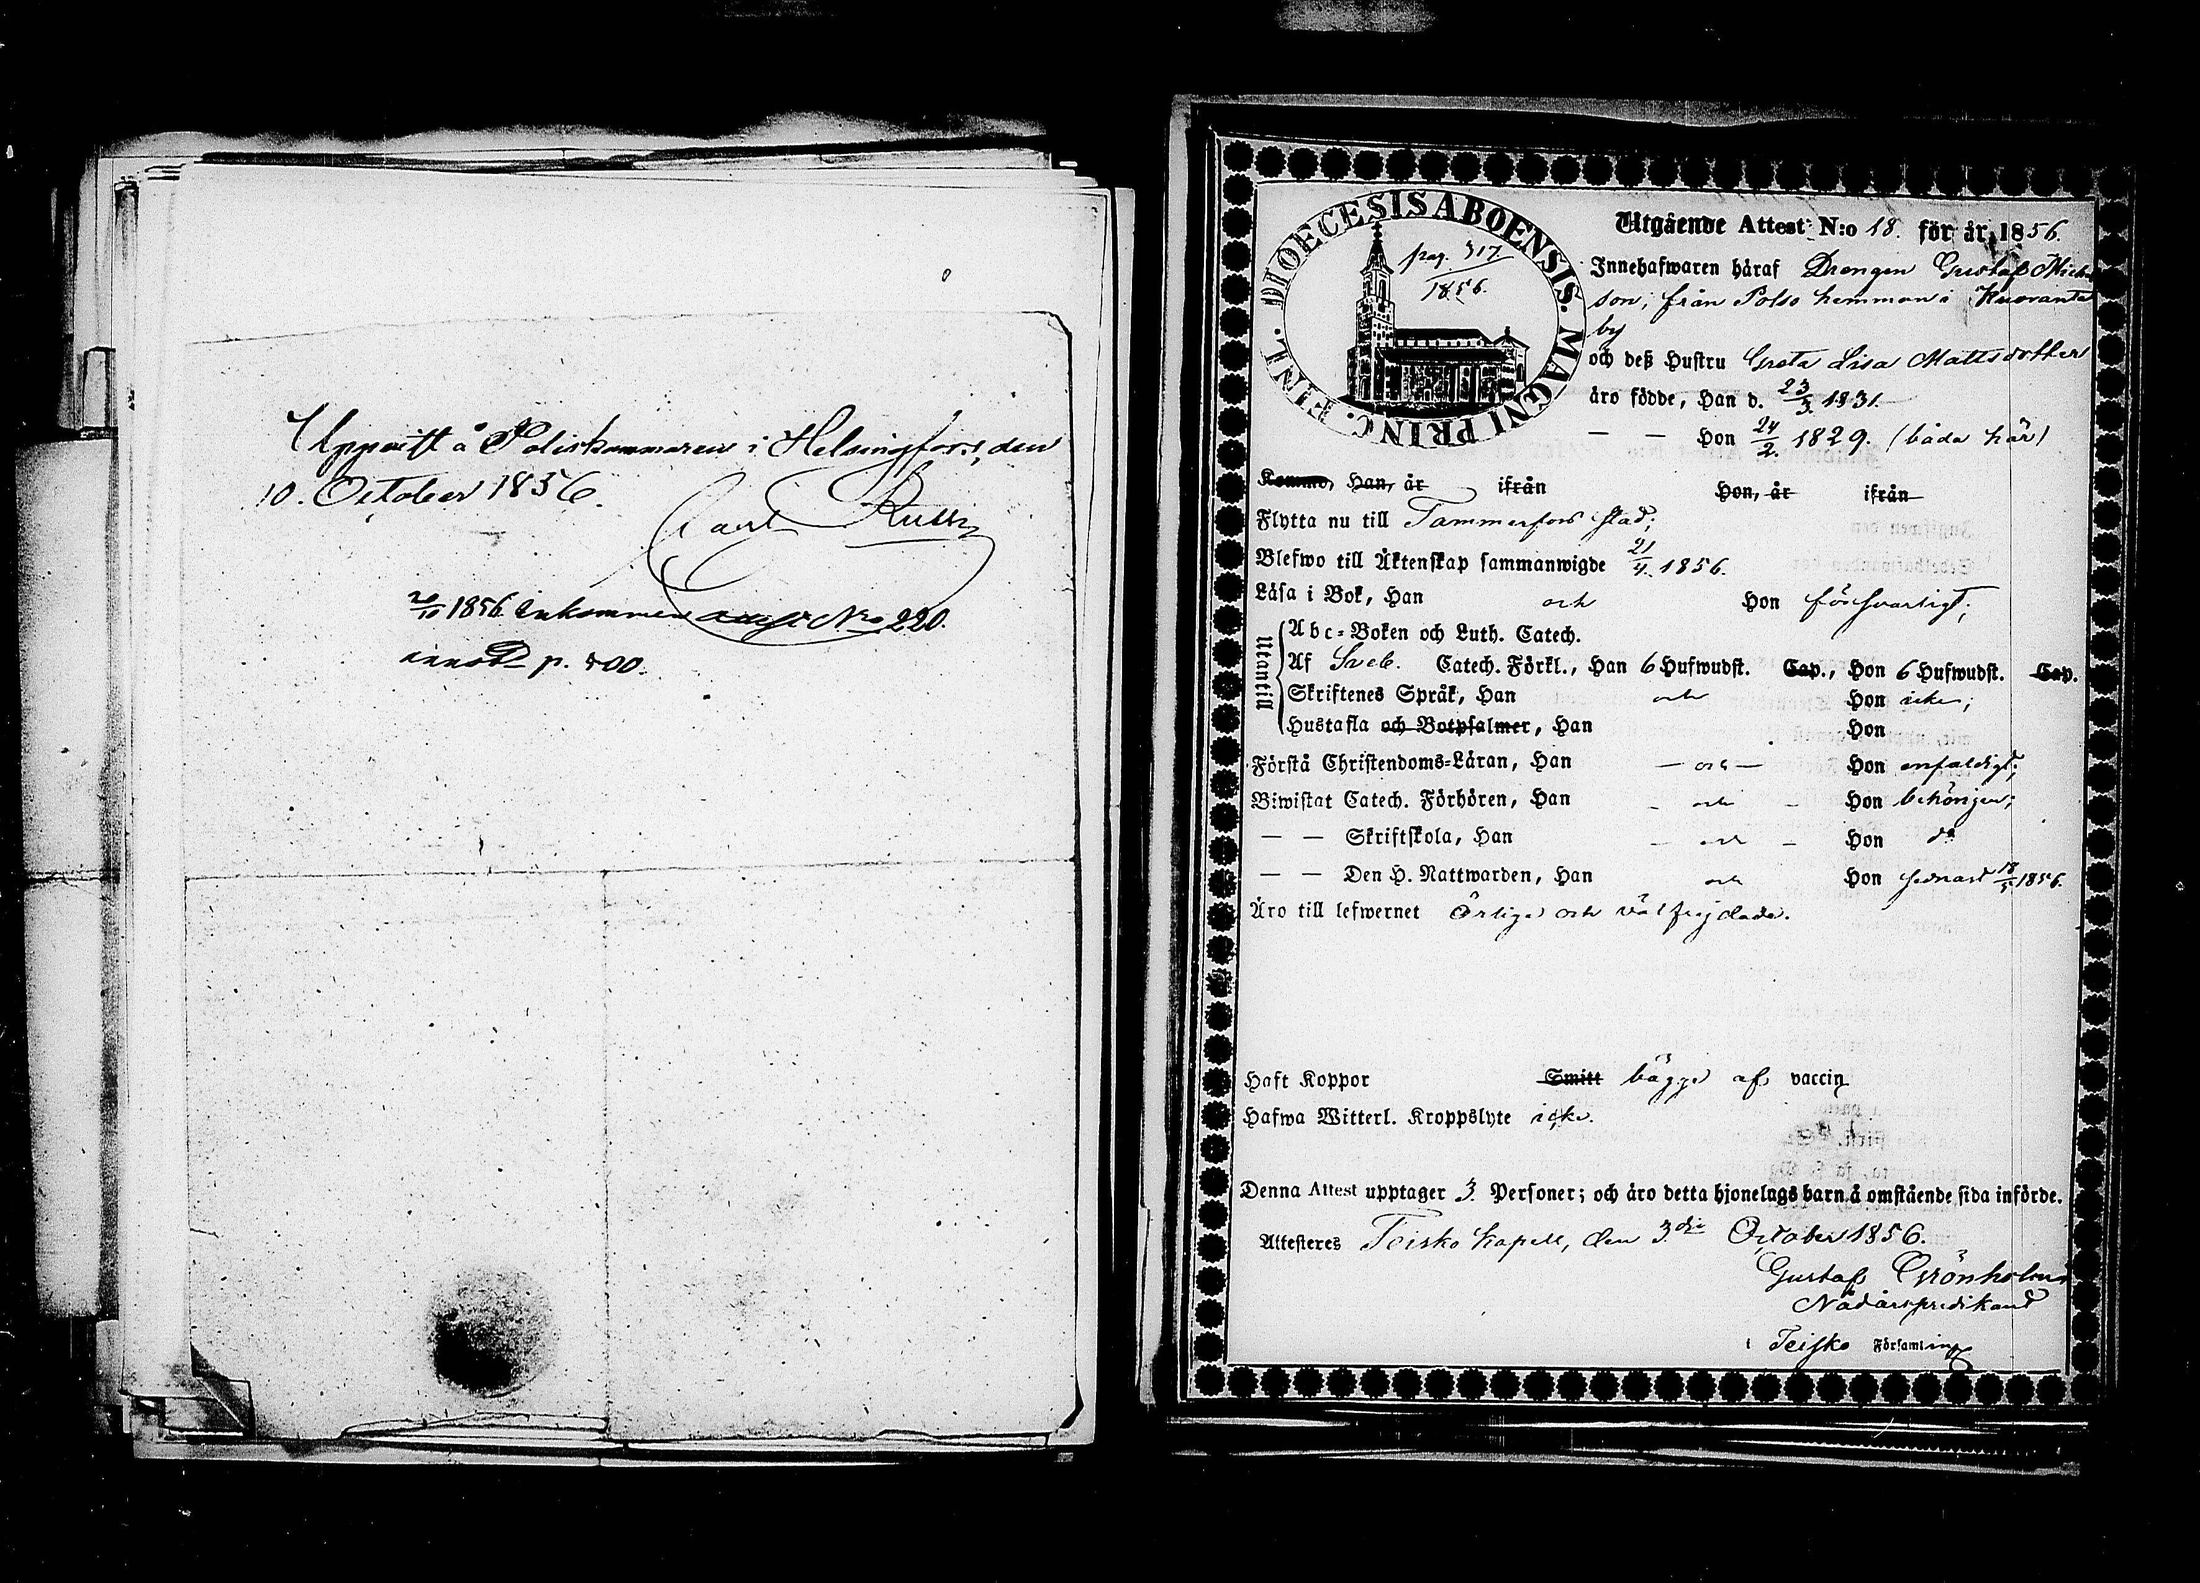 Uppvist å Poliskammaren i Helsingfors, den
10. October 1856.
Carl
20/10 1856. Inkommen N:o 220.
p. 400.
DIOECESIS ABOENSIS. MAGNI PRINC. FINL.
pag. 317
1856.
Utgående Attest N:o 18. för år 1856.
Innehafwaren häraf Drengen Gustaf Michels
son, från Polso hemman i Kuoranta
by
och deß Hustru Greta Lisa Mattsdotter
äro födde, Han d. 23/3 1831.
— — Hon 24/2. 1829. (båda här)
Komme, Han, år ifrån Hon, år ifrån
Flytta nu till Tammerfors stad;
Blefwo till Äktenskap sammanwigde 21/4. 1856.
Läsa i Bok, Han och Hon försvarligt;
Utantill
Abc-Boken och Luth. Catech.
Af Sveb. Catech. Förkl., Han 6 Hufwudst. Cap., Hon 6 Hufwudst. Cap.
Skriftenes Språk, Han och Hon icke;
Hustafla och Botpsalmer, Han Hon
Förstå Christendoms-Läran, Han — och — Hon enfaldigt;
Biwistat Catech. Förhören, Han — och — Hon behörigen;
— — Skriftskola, Han — och — Hon do
— — Den H. Nattwarden, Han och Hon sednast 18/5 1856.
Äro till lefwernet Ärliga och välfrejdade.
Haft Koppor Smitt bägge af vaccin
Hafwa Witterl. Kroppslyte icke.
Denna Attest upptager 3. Personer; och äro detta hjonelags barn å omstående sida införde.
Attesteres Teisko Kapell, den 3die October 1856.
Gustaf Grönholm
Nådårspredikant
i Teisko Församling